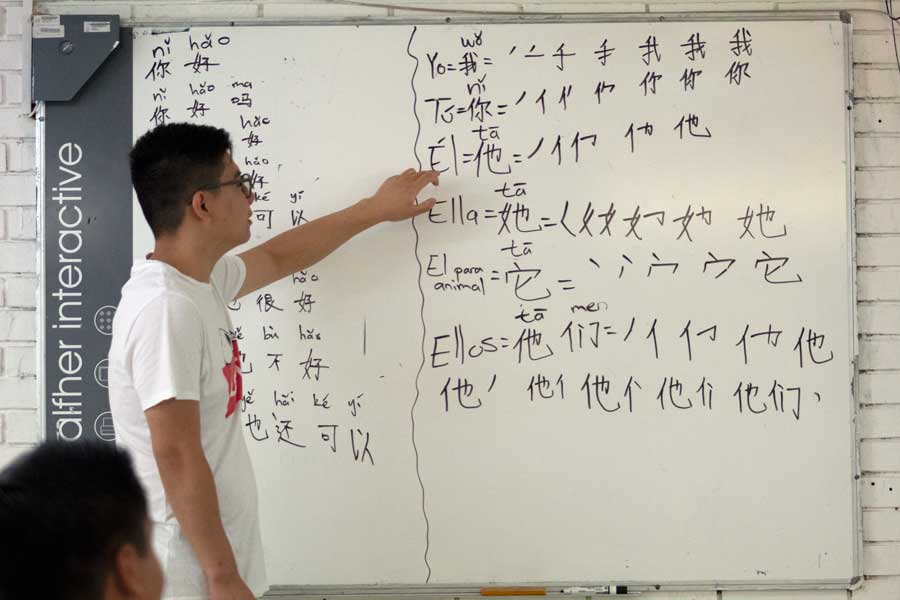 alfher interactive
nǐ hǎo
你 好
nǐ hǎo ma
你 好 吗
hǎo
好
hǎo
好
ké yǐ
可 以
hǎo
很 好
bù hǎo
也 不 好
yě hǎi ké yí
也 还 可 以
wǒ
Yo=我= ノ 二 手 手 我 我 我
nǐ
Tú=你= 你 你 你
tā
Él=他= 他
tā
Ella=她= 她
tā
El para animal=它= 它
tā men
Ellos=他 们= 他
他 他 他 他 他们